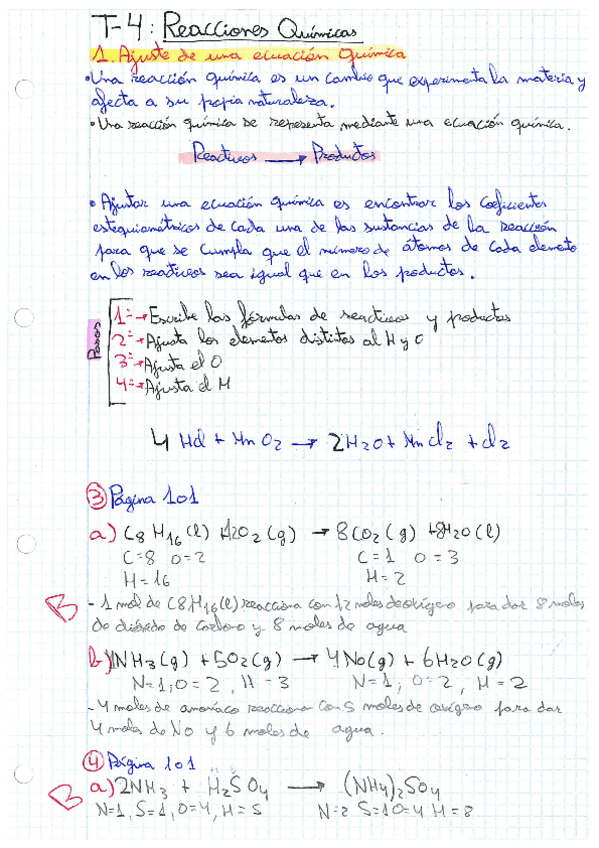 T-4: Reacciones Químicas
1. Ajuste de una ecuación Química
• Una reacción química es un cambio que experimenta la materia y
afecta a su propia naturaleza.
• Una reacción química se representa mediante una ecuación química.
Reactivos → Productos
• Ajustar una ecuación química es encontrar los coeficientes
estequiométricos de cada una de las sustancias de la reacción
para que se cumpla que el número de átomos de cada elemento
en los reactivos sea igual que en los productos.
Pasos
1º → Escribe las fórmulas de reactivos y productos
2º → Ajusta los elementos distintos al H y O
3º → Ajusta el O
4º → Ajusta el H
4 HCl + MnO₂ → 2H₂O + MnCl₂ + Cl₂
③ Página 101
a) C₈H₁₆(l) + 12O₂(g) → 8CO₂(g) + 8H₂O(l)
C=8 O=2 C=1 O=3
H=16 H=2
B - 1 mol de C8H16(l) reacciona con 12 moles de oxígeno para dar 8 moles
de dióxido de carbono y 8 moles de agua
b) 4NH₃(g) + 5O₂(g) → 4NO(g) + 6H₂O(g)
N=1; O=2, H=3 N=1; O=2, H=2
- 4 moles de amoniaco reaccionan con 5 moles de oxígeno para dar
4 moles de NO y 6 moles de agua.
④ Página 101
B a) 2NH₃ + H₂SO₄ → (NH₄)₂SO₄
N=1, S=1, O=4, H=5 N=2 S=1 O=4 H=8